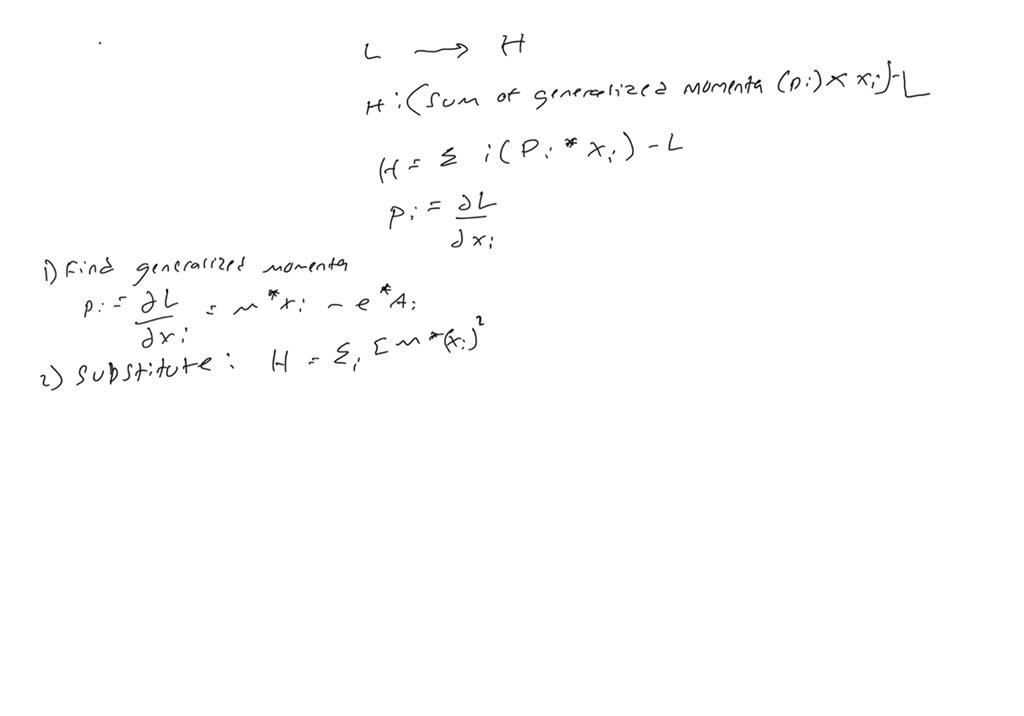 L → H
H : (sum of generalized momenta (pi) × xi) - L
H = Σ i (Pi * xi) - L
Pi = ∂L / ∂xi
1) Find generalized momenta
Pi = ∂L / ∂xi = m * xi - e * Ai
2) Substitute : H = Σi [m * (xi)²